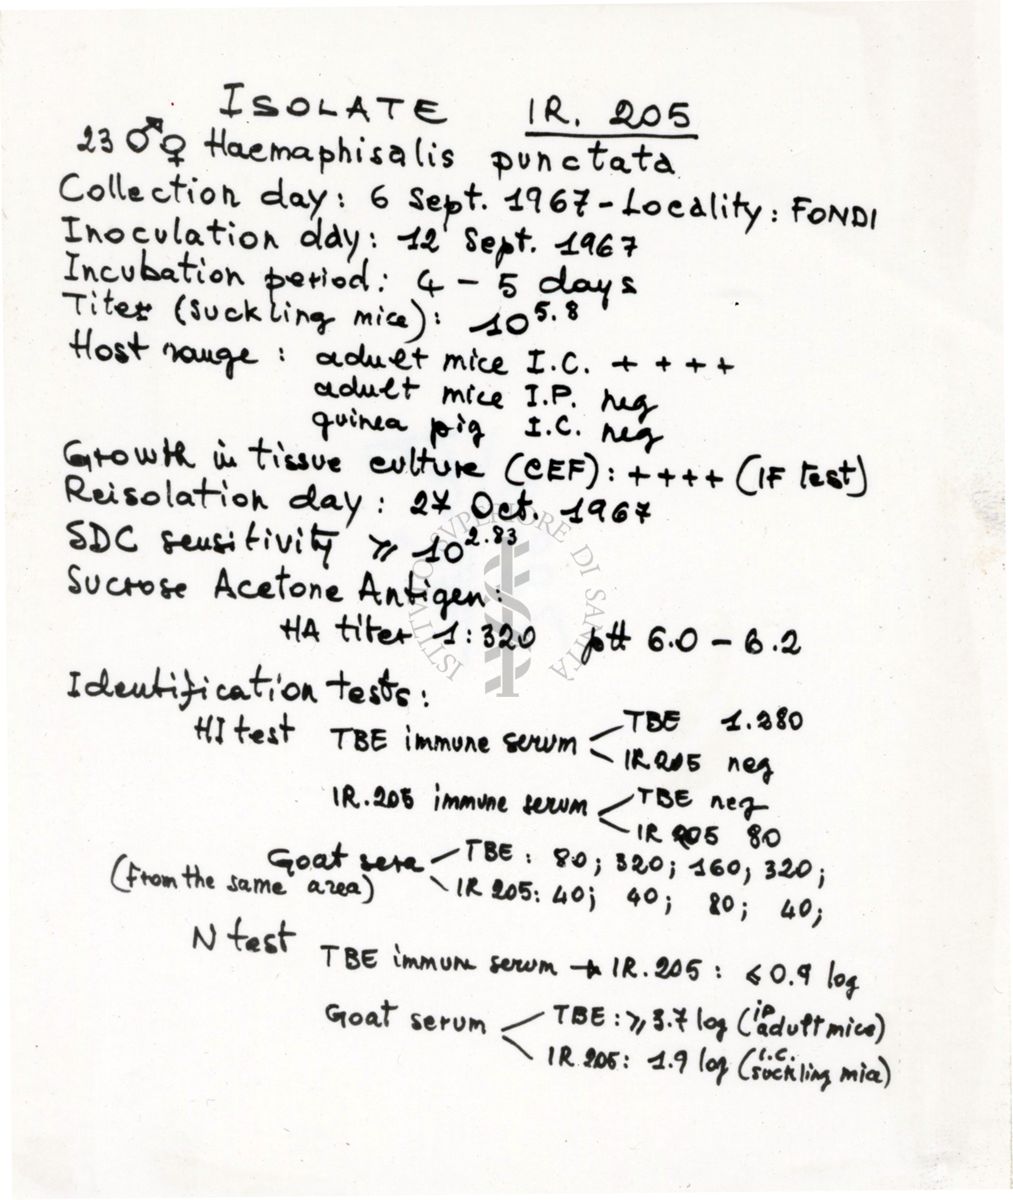 ISOLATE IR. 205
23 ♂♀ Haemaphisalis punctata
Collection day: 6 Sept. 1967 - Locality: FONDI
Inoculation day: 12 Sept. 1967
Incubation period: 4 - 5 days
Titer (suckling mice): 10^5.8
Host range: adult mice I.C. + + + +
adult mice I.P. neg
guinea pig I.C. neg
Growth in tissue culture (CEF): ++++ (IF test)
Reisolation day: 27 Oct. 1967
SDC sensitivity ⩾ 10^2.83
Sucrose Acetone Antigen:
HA titer 1:320 pH 6.0 - 6.2
ISTITUTO SVPERIORE DI SANITA
Identification tests:
HI test TBE immune serum TBE 1.280
IR 205 neg
IR.205 immune serum TBE neg
IR 205 80
Goat sera TBE: 80; 320; 160; 320;
(From the same area) IR 205: 40; 40; 80; 40;
N test
TBE immune serum → IR.205: ⩽ 0.9 log
Goat serum TBE: ⩾ 3.7 log (ip adult mice)
IR 205: 1.9 log (i.c. suckling mice)